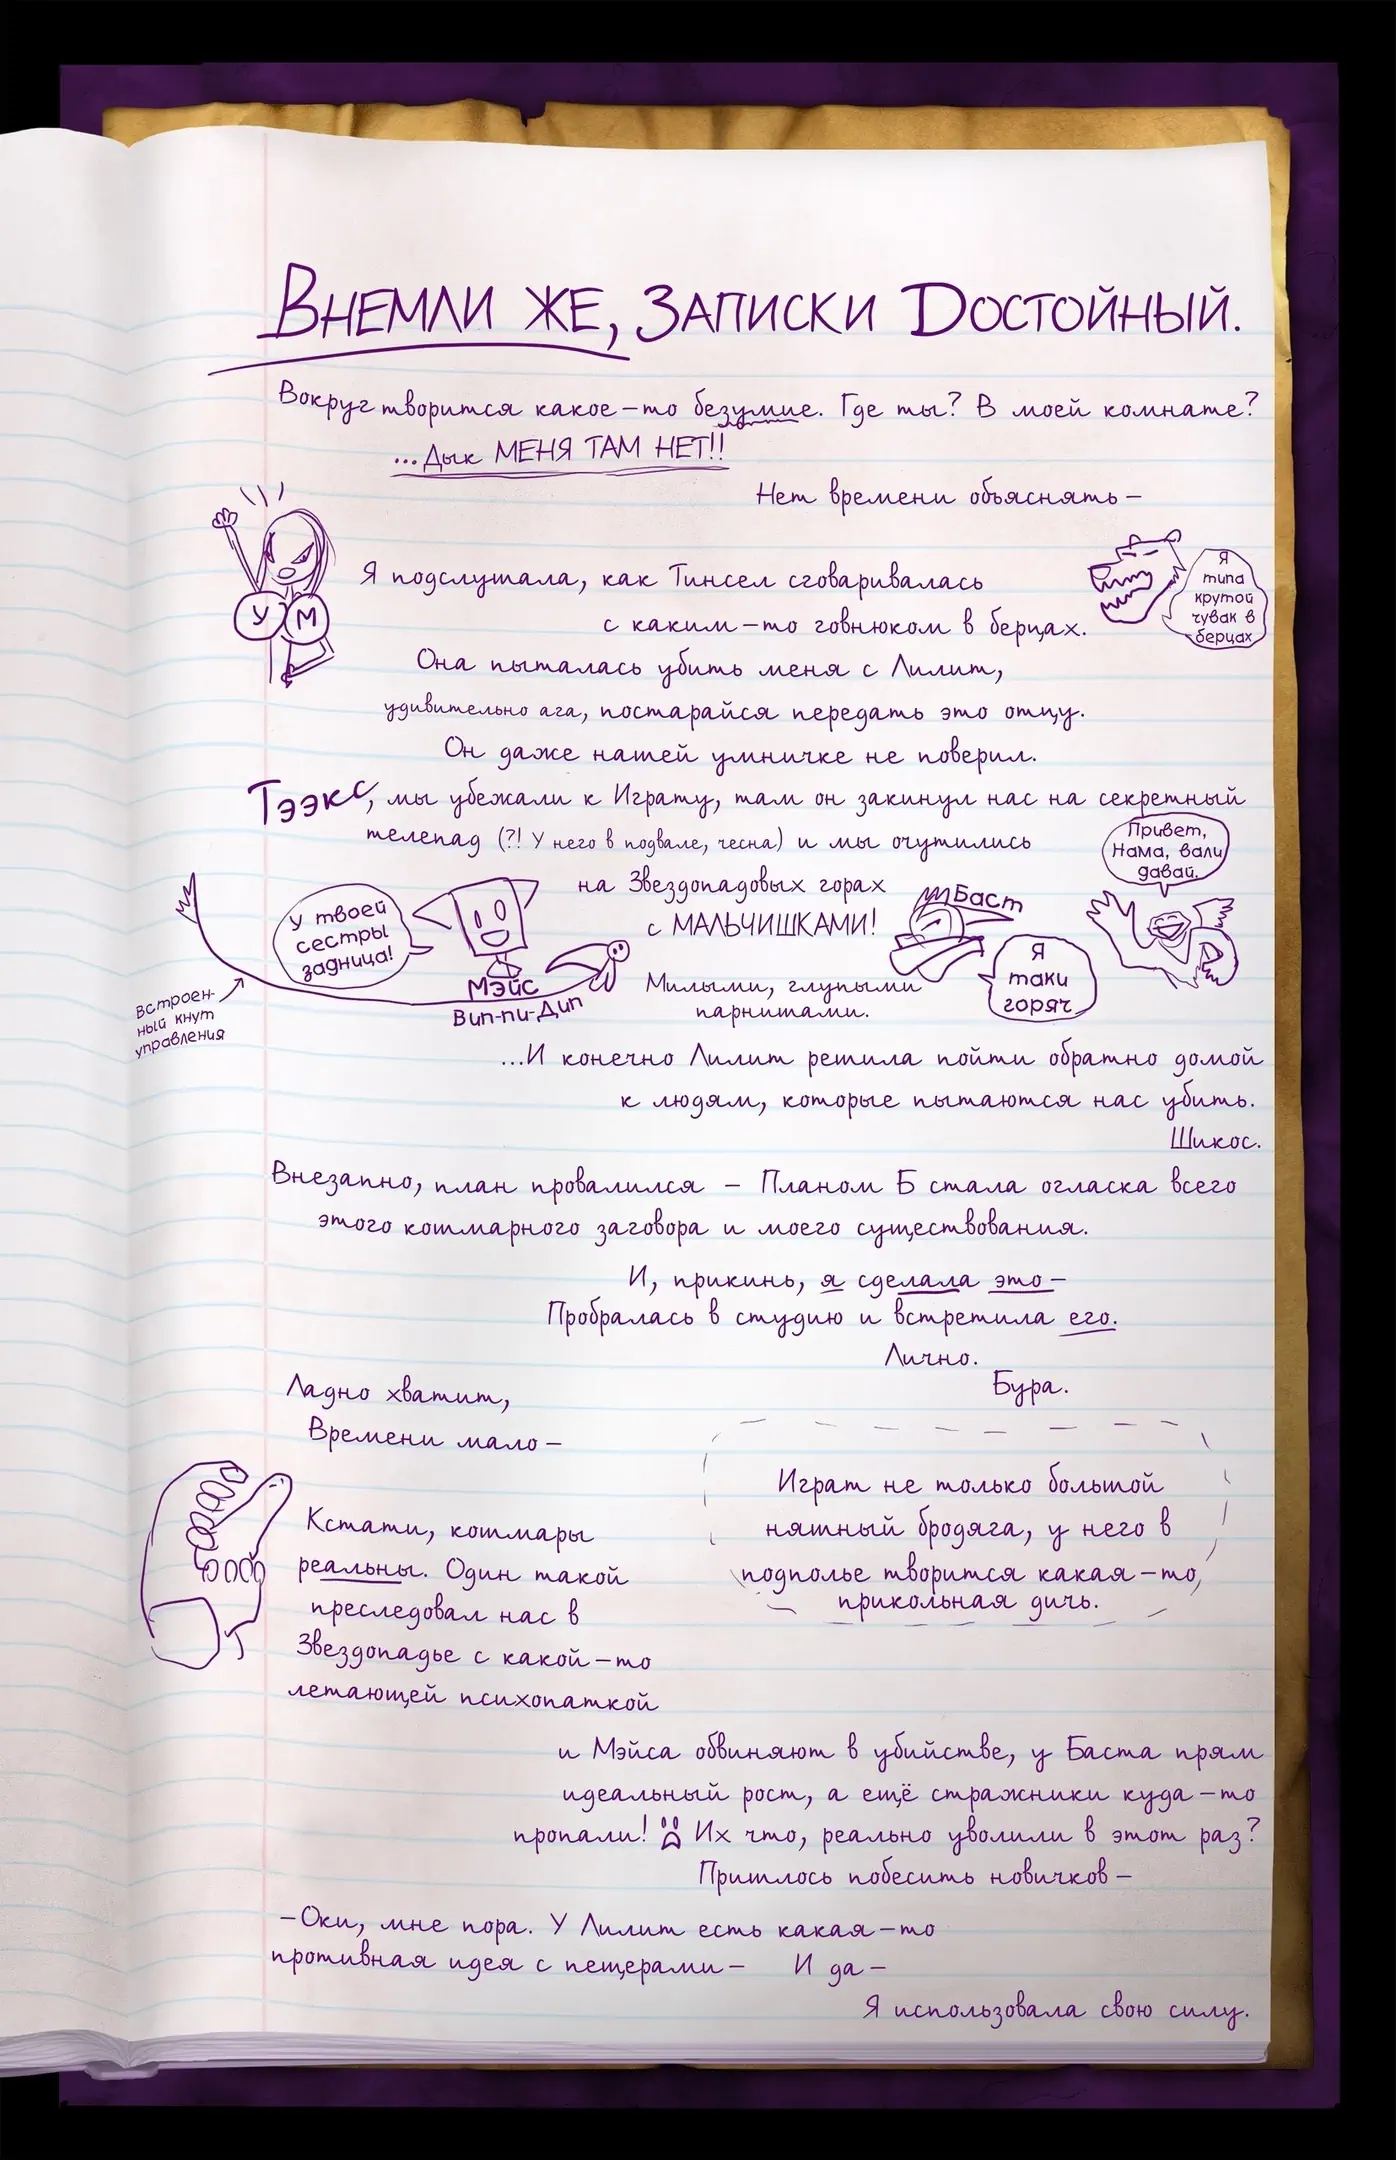 Внемли же, Записки Достойный.
Вокруг творится какое-то безумие. Где ты? В моей комнате?
...Дык МЕНЯ ТАМ НЕТ!!
Нет времени объяснять –
Я подслушала, как Тинсел сговаривалась
с каким-то говнюком в берцах.
У М
Я
типа
крутой
чувак в
берцах
Она пыталась убить меня с Лилит,
удивительно ага, постарайся передать это отцу.
Он даже нашей умничке не поверил.
Тээкс, мы убежали к Играту, там он закинул нас на секретный
телепад (?! У него в подвале, чесна) и мы очутились
Привет,
Нама, вали
давай.
на Звездопадовых горах
с МАЛЬЧИШКАМИ!
У твоей
сестры
задница!
Мэйс
Вип-пи-Дип
Встроен-
ный кнут
управления
Баст
Я
таки
горяч
Милыми, глупыми
парнишами.
...И конечно Лилит решила пойти обратно домой
к людям, которые пытаются нас убить.
Шикос.
Внезапно, план провалился – Планом Б стала огласка всего
этого кошмарного заговора и моего существования.
И, прикинь, я сделала это –
Пробралась в студию и встретила его.
Лично.
Бура.
Ладно хватит,
Времени мало –
Кстати, кошмары
реальны. Один такой
преследовал нас в
Звездопадье с какой-то
летающей психопаткой
Играт не только большой
няшный бродяга, у него в
подполье творится какая-то
прикольная дичь.
и Мэйса обвиняют в убийстве, у Баста прям
идеальный рост, а ещё стражники куда-то
пропали! Их что, реально уволили в этот раз?
Пришлось побесить новичков –
–Оки, мне пора. У Лилит есть какая-то
противная идея с пещерами – И да –
Я использовала свою силу.